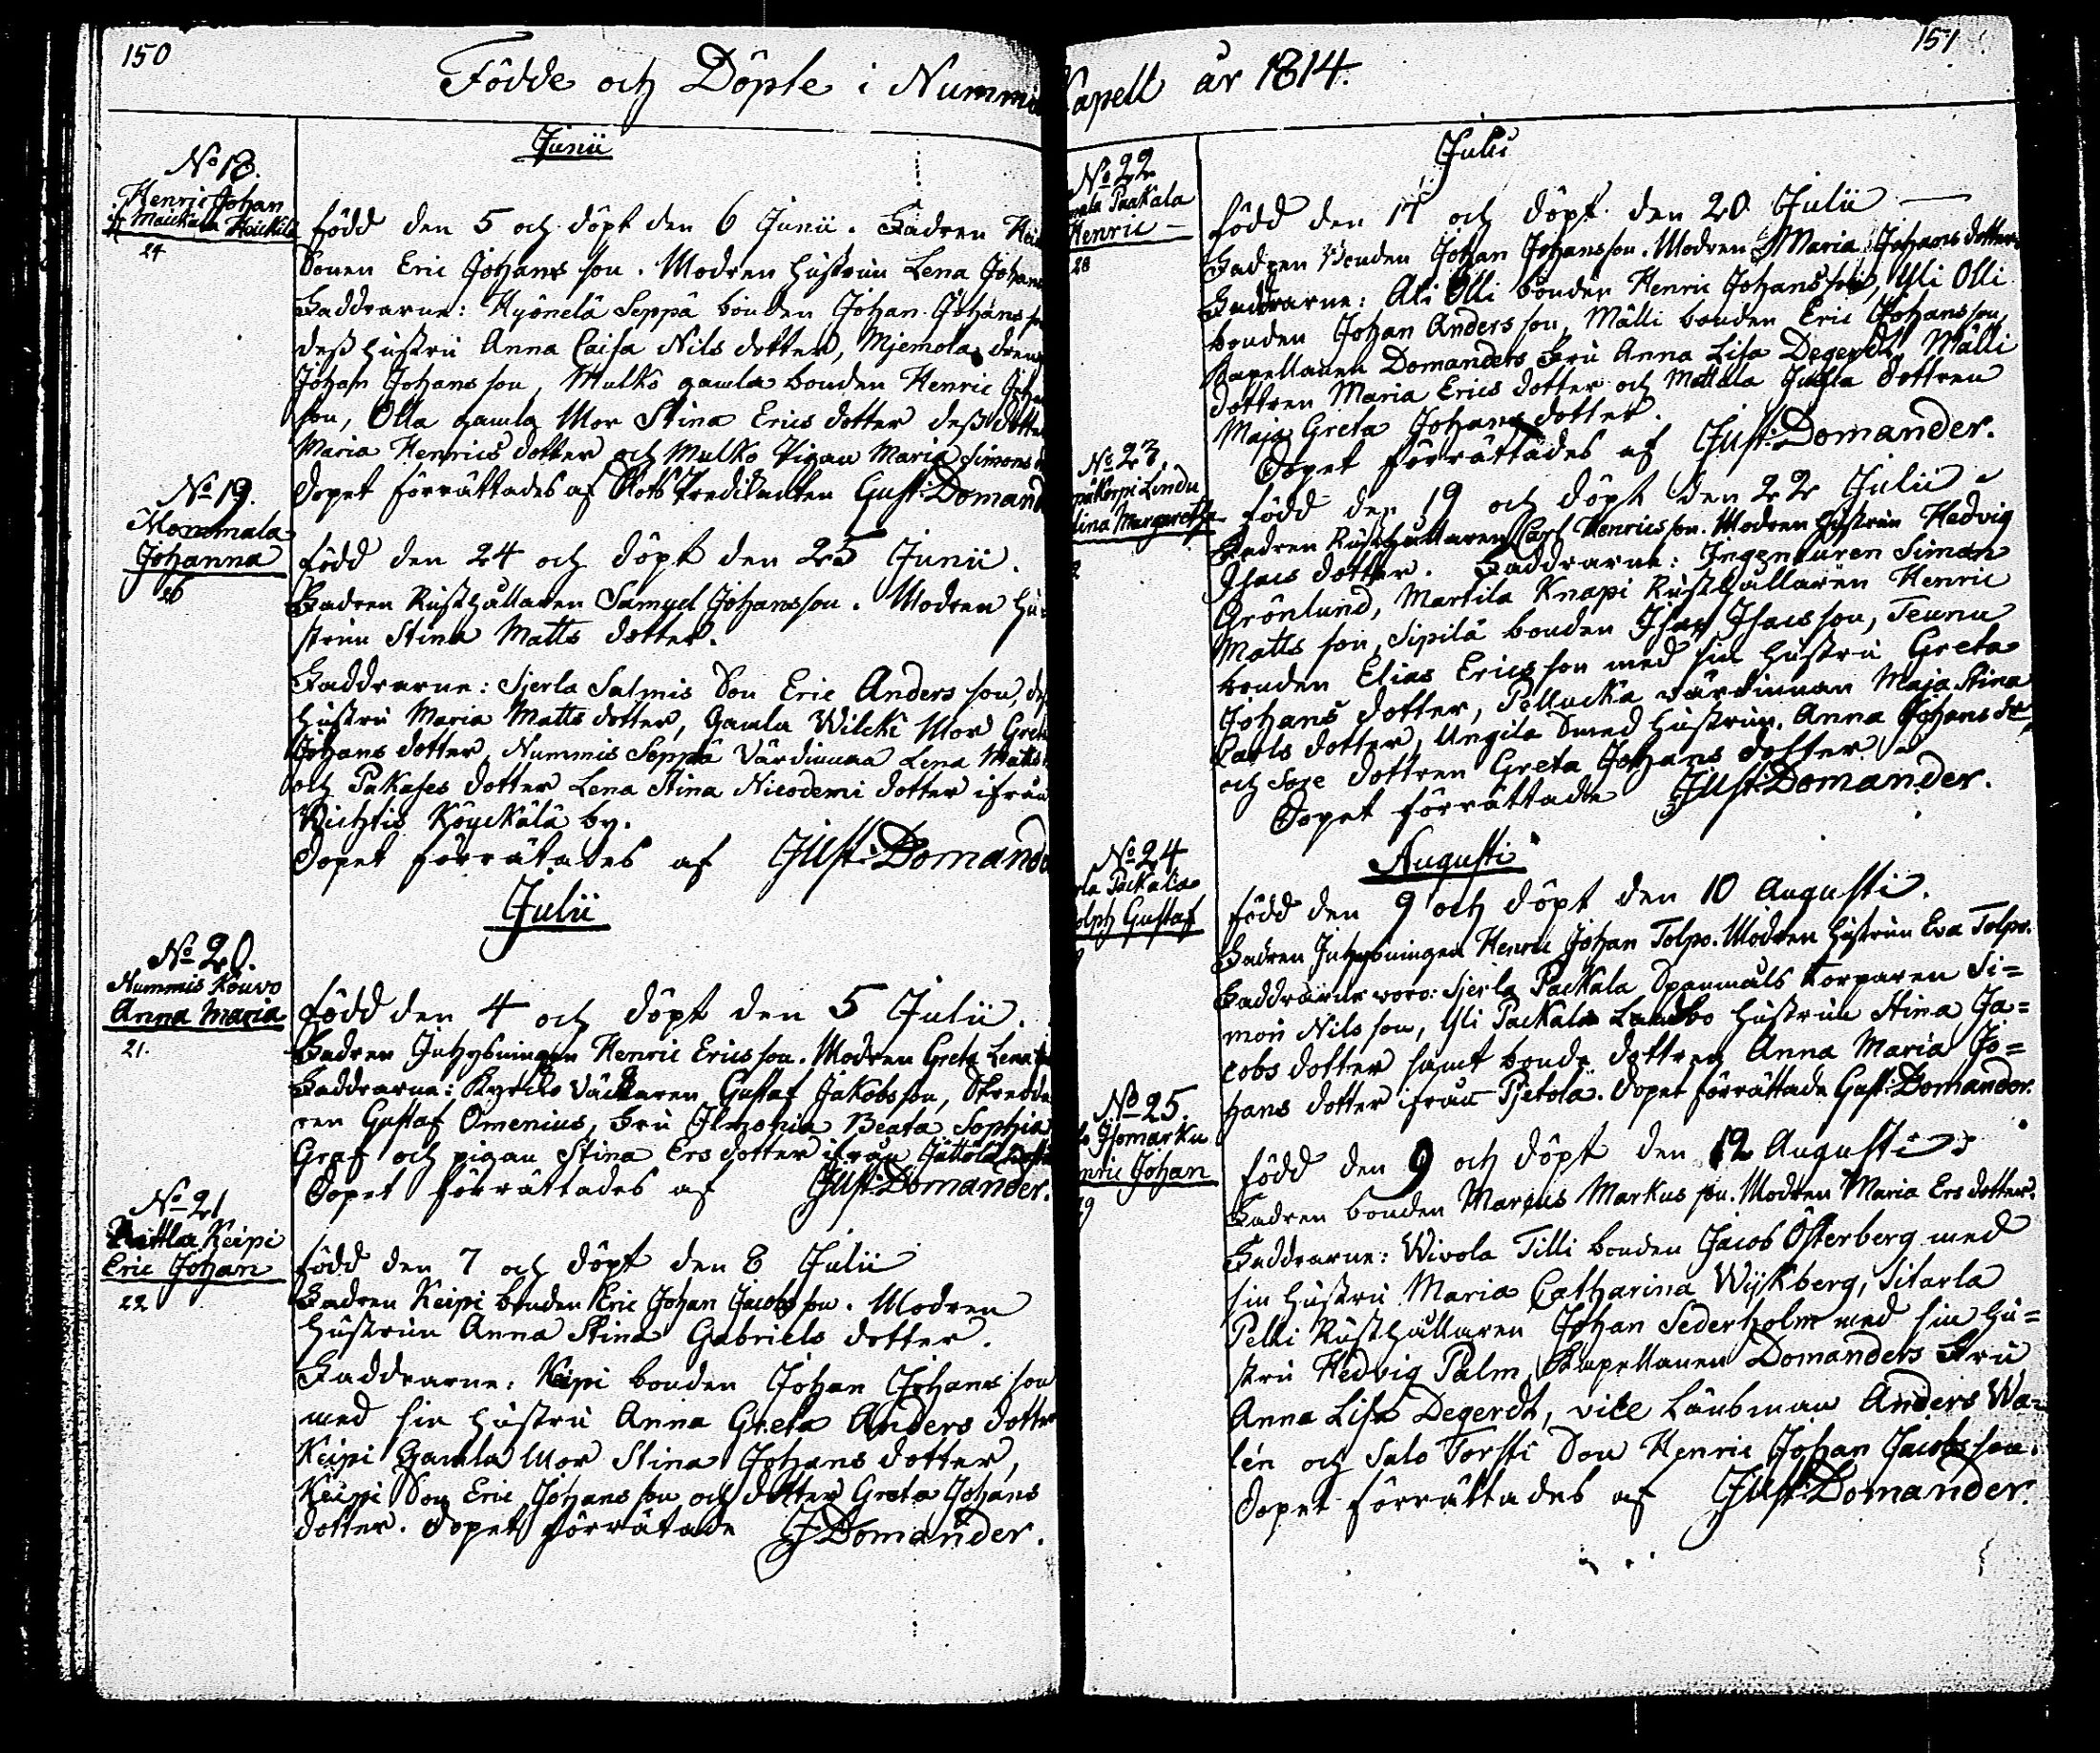 150
Födde och Döpte i Nummis
Junii
No 18.
Henric Johan
Maickala Heickilä
24
född den 5 och döpt den 6 Junii. Fadren
Sonen Eric Johans son. Modren hustrun Lena Johans
Faddrarne: Hyönelä Seppä bonden Johan Johans
dess hustru Anna Caisa Nils dotter, Mjemola dreng
Johan Johans son, Mulko gamla bonden Henric
son, Olla gamla Mor Stina Erics dotter dess dotter
Maria Henrics dotter och Mulko Pigan Maria Simons
Dopet förrättades af Slots Predikanten Gust: Domand
No 19.
Mommala
Johanna
26
född den 24 och döpt den 25 Junii.
Fadren Rusthållaren Samuel Johansson. Modren hu-
strun Stina Matts dotter.
Faddrarne: Sjerla Salmis Son Eric Anders son,
hustru Maria Matts dotter, Gamla Wilcki Mor Greta
Johans dotter, Nummis Seppä Värdinna Lena Matts
och Pakases dotter Lena Stina Nicodemi dotter ifrån
Wichtis Köyckälä by.
Dopet förrätades af Gust: Domand
Julii
No 20.
Nummis Kouvo
Anna Maria
21.
född den 4 och döpt den 5 Julii.
Fadren Inhysningen Henric Ericsson. Modren Greta Lena
Faddrarne: Kyrcko Väcktaren Gustaf Jakobsson, Skredda
ren Gustaf Omenius, Fru Beata Sophia
Graf och pigan Stina Ers dotter ifrån Jättölä
Dopet förrättades af Gust: Domander.
No 21
Keipi
Eric Johan
22
född den 7 och döpt den 8 Julii
Fadren Keipi bonden Eric Johan Jacobsson. Modren
Hustrun Anna Stina Gabriels dotter.
Faddrarne: Keipi bonden Johan Johans son
med sin hustru Anna Greta Anders dotter
Keipi Gamla Mor Stina Johans dotter,
Keipi Son Eric Johans son och dotter Greta Johans
dotter. Dopet förrätade G Domander.
151
Kapell år 1814.
Julii
No 22
Packala
Henric
28
född den 17 och döpt den 20 Julii
Fadren bonden Johan Johansson. Modren Maria Johans dotter.
Faddrarne: Ali Olli bonden Henric Johansson, Yli Olli
bonden Johan Anders son, Mälli bonden Eric Johansson,
Kapellanen Domanders Fru Anna Lisa Degerdt, Mälli
dottren Maria Erics dotter och Mattila dottren
Maja Greta Johans dotter.
Dopet förrättades af Gust: Domander.
No 23
Lindu
Margaretha
född den 19 och döpt den 22 Julii
Fadren Rusthållaren Carl Henricsson. Modren Hustrun Hedvig
Isacs dotter. Faddrarne: Ingenieuren Simon
Grönlund, Martila Knapi Rusthållaren Henric
Matts son, Sipilä bonden Isac Isacsson, Teunu
bonden Elias Ericsson med sin hustru Greta
Johans dotter, Pellackä värdinnan Maja Stina
Carls dotter, Ungila Smed hustrun Anna Johans dr,
och Sore dottren Greta Johans dotter.
Dopet förrättade Gust: Domander.
Augusti
No 24
Packala
Gustaf
född den 9 och döpt den 10 Augusti.
Fadren Inhysningen Henric Johan Tolpo. Modren Hustrun Eva Tolpo.
Faddrarne woro: Sjerla Packala Spanmåls Torparen Si=
mon Nils son, Yli Packala Landbo hustrun Stina Ja=
cobs dotter samt bonde dottren Anna Maria Jo=
hans dotter ifrån Pjetola. Dopet förrättade Gust: Domander.
No 25.
Isomarku
Johan
född den 9 och döpt den 12 Augusti
Fadren bonden Marcus Markus son. Modren Maria Ers dotter.
Faddrarne: Wivola Tilli bonden Jacob Österberg med
sin hustru Maria Catharina Wijkberg, Sitarla
Pelli Rusthållaren Johan Sederholm med sin hu=
stru Hedvig Palm, Kapellanen Domanders Fru
Anna Lisa Degerdt, vice Länsman Anders Wa=
lén och Salo Torsti Son Henric Johan Jacobsson.
Dopet förrättades af Gust: Domander.